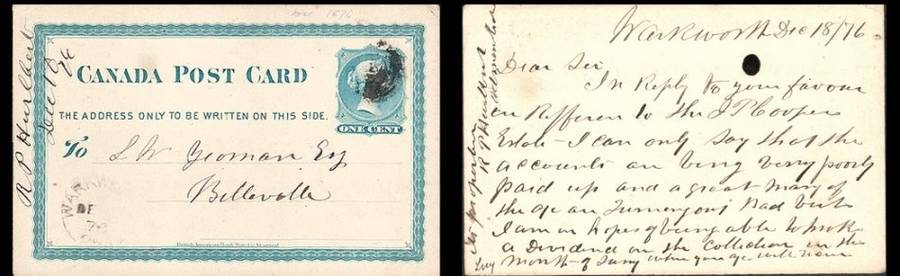 Dec 1876
R P Hurlbert
Dec 18/76
CANADA POST CARD
ONE CENT
THE ADDRESS ONLY TO BE WRITTEN ON THIS SIDE.
To
S W Yeoman Esq
Belleville
WARKW
DE
76
British American Bank Note Co. Montreal
Warkworth Dec 18/76
Dear Sir
In Reply to your favour
in Refference to the J P Cooper
Estate I can only say that the
accounts are being very poorly
paid up and a great many of
the are turning out bad but
I am in hopes of being able to make
a Dividend on the Collection in the
Month of Jany when you will hear
R P Hurlbert